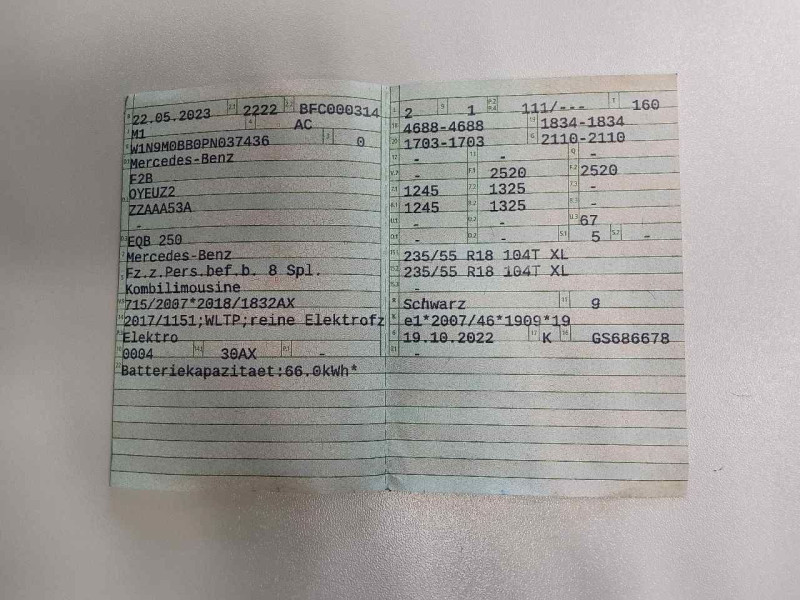 22.05.2023 2222 BFC000314
M1 AC
W1N9M0BB0PN037436 0
Mercedes-Benz
F2B
OYEUZ2
ZZAAA53A
-
EQB 250
Mercedes-Benz
Fz.z.Pers.bef.b. 8 Spl.
Kombilimousine
715/2007*2018/1832AX
2017/1151;WLTP;reine Elektrofz
Elektro
0004 30AX -
Batteriekapazitaet:66.0kWh*
2 1 111/--- 160
4688-4688 1834-1834
1703-1703 2110-2110
- - -
- 2520 2520
1245 1325 -
1245 1325 -
- - 67
- - 5 -
235/55 R18 104T XL
235/55 R18 104T XL
-
Schwarz 9
e1*2007/46*1909*19
19.10.2022 K GS686678
-